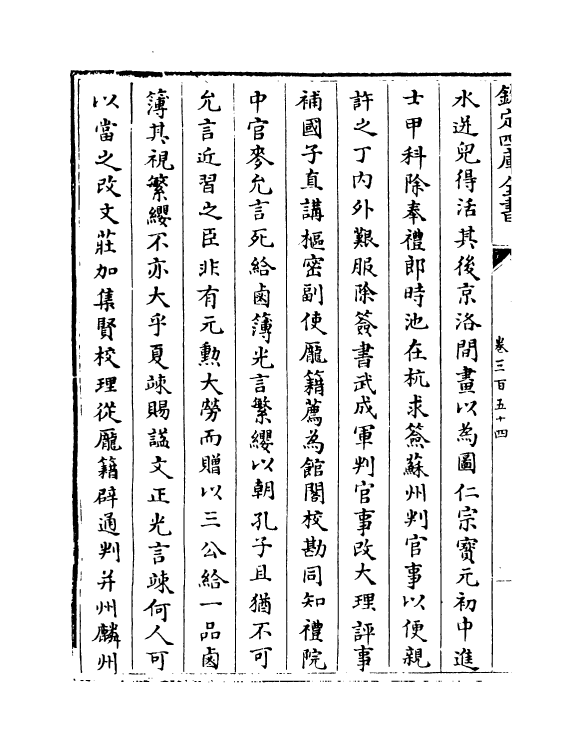 欽定四庫全書
卷三百五十四
水迸兒得活其後京洛間畫以為圖仁宗寳元初中進
士甲科除奉禮郎時池在杭求簽蘇州判官事以便親
許之丁内外艱服除簽書武成軍判官事改大理評事
補國子直講樞密副使龐籍薦為館閣校勘同知禮院
中官麥允言死給鹵簿光言繁纓以朝孔子且猶不可
允言近習之臣非有元勲大勞而贈以三公給一品鹵
簿其視繁纓不亦大乎夏竦賜諡文正光言竦何人可
以當之改文莊加集賢校理從龐籍辟通判并州麟州